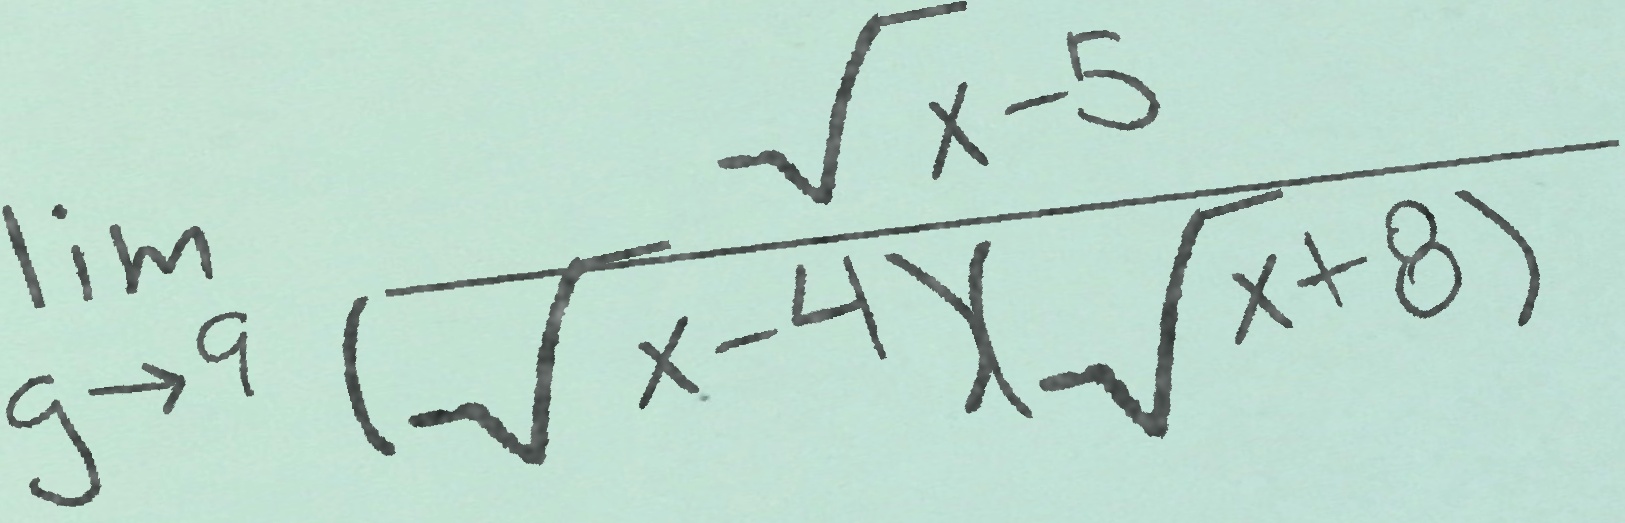 \lim_{g \to 9} \frac{\sqrt{x-5}}{(\sqrt{x-4})(\sqrt{x+8})}